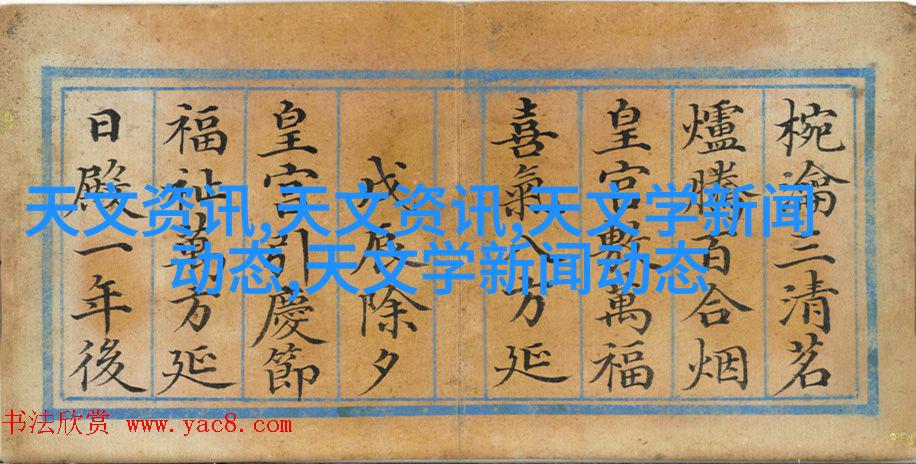 椀瀹三清茗
爐騰百合烟
皇宮數萬福
喜氣八方延
戊辰除夕
皇宮引慶節
福祉萬方延
日殿一年後
天文资讯,天文资讯,天文学新闻
动态,天文学新闻动态
书法欣赏 www.yac8.com